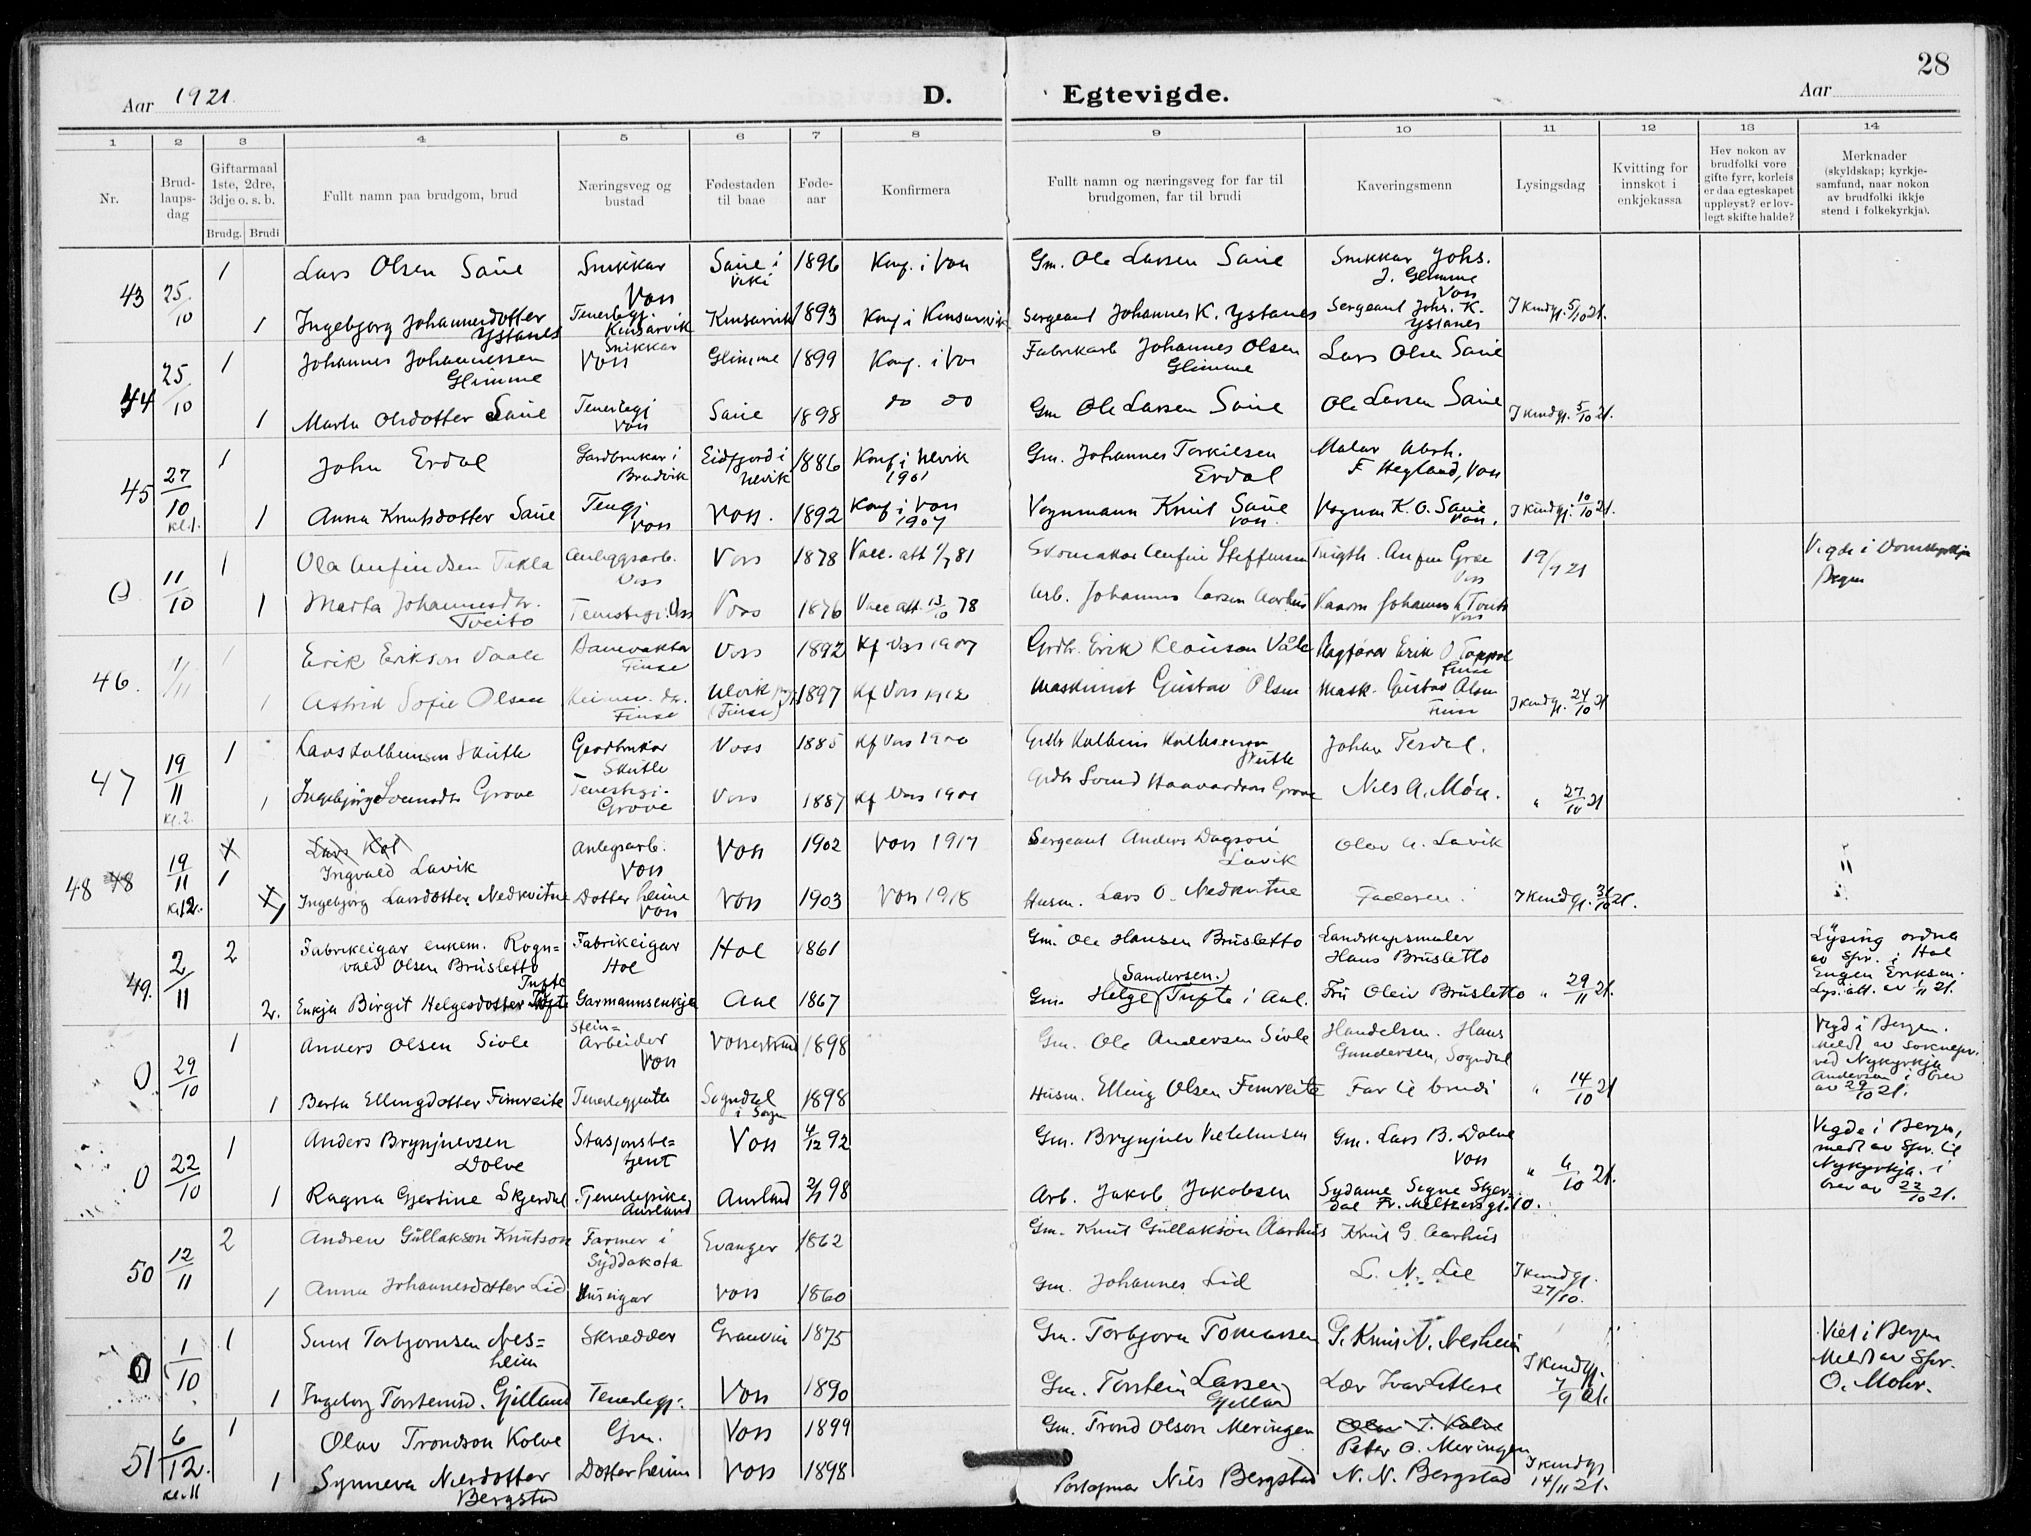 28
Aar 1921.
D. Egtevigde.
Aar
1 2 3 4 5 6 7 8 9 10 11 12 13 14
Nr.
Brud-
laups-
dag
Giftarmaal
1ste, 2dre,
3dje o. s. b.
Brudg. Brudi
Fullt namn paa brudgom, brud
Næringsveg og
bustad
Fødestaden
til baae
Føde-
aar
Konfirmera
Fullt namn og næringsveg for far til
brudgomen, far til brudi
Kaveringsmenn
Lysingsdag
Kvitting for
innskot i
enkjekassa
Hev nokon av
brudfolki vore
gifte fyrr, korleis
er daa egteskapet
uppløyst? er lov-
legt skifte halde?
Merknader
(skyldskap; kyrkje-
samfund, naar nokon
av brudfolki ikkje
stend i folkekyrkja).
43 25/10
1 Lars Olsen Saue Snikkar Voss Saue i Viki 1896 Konf. i Voss Gm. Ole Larsen Saue Snikkar Johs. J. Glimme Voss
1 Ingebjørg Johannesdotter Ystanes Tenestegj. Kinsarvik Kinsarvik 1893 Konf i Kinsarvik Sergeant Johannes K. Ystanes Sergeant Johs. K. Ystanes I kundgj. 5/10 21.
44 25/10
1 Johannes Johannessen Glimme Snikkar Voss Glimme 1899 Konf. i Voss Fabrikarb Johannes Olsen Glimme Lars Olsen Saue
1 Marta Olsdotter Saue Tenestegj Voss Saue 1898 do do Gm Ole Larsen Saue Ole Larsen Saue I kundgj. 5/10 21.
45 27/10 kl. 1.
1 John Erdal Gardbrukar i Bruvik Eidfjord i Ulvik 1886 Konf i Ulvik 1901 Gm. Johannes Torkilsen Erdal Malar Abrh. F. Hegland, Voss
1 Anna Knutsdotter Saue Tengj Voss Voss. 1892 Konf i Voss 1907 Vognmann Knut Saue Voss. Vognm K. O. Saue Voss. I kundgj. 10/10 21.
0 11/10
1 Ola Anfindsen Takla Anleggsarb. Voss Voss 1878 Vacc. att 1/7 81 Skomakar Anfin Steffensen Anfin Gjøe Voss 19/9 21 Vigde i Domkyrkja Bergen
1 Marta Johannesdtr. Tveito Tenestegj. Voss Voss 1876 Vacc att. 13/10 78 Arb. Johannes Larsen Aarhus Johannes Voss
46. 1/11
1 Erik Erikson Vaale Banevaktar Finse Voss 1892 Kf Voss 1907 Grdbr. Erik Klauson Våle Erik O Finse
1 Astrid Sofie Olsen Heimev. dr. Finse Ulvik (Finse) 1897 Kf Voss 1912 Maskinist Gustav Olsen Mask. Gustav Olsen Finse I kundgj. 24/10 21
47 19/11 kl. 2.
1 Lars Kolbeinsen Skutle Gardbrukar Skutle Voss 1885 Kf Voss 1900 Grdbr Kolbein Kolbeinson Skutle Johan Tesdal.
1 Ingebjørg Sveinsdtr Grove Tenestegj. Grove Voss 1887 Kf Voss 1901 Grdbr Svend Haavardson Grove Nils A. Møn. " 27/10 21
48 48 19/11 kl 2.
1 Lars Kol Ingvald Lavik Anlegsarb. Voss Voss 1902 Voss 1917 Sergeant Anders Dagson Lavik Olav A. Lavik
1 Ingebjørg Larsdotter Nedkvitne Dotter heime Voss Voss 1903 Voss 1918 Husm. Lars O. Nedkvitne Faderen. I kundgj. 31/10 21.
49. 2/11
2 Fabrikeigar enkem. Rogn=vald Olsen Brusletto Fabrikeigar Hol Hol 1861 Gm. Ole Hansen Brusletto Landskapsmaler Hans Brusletto Lysing ordna av Spr. i Hol Engen Erikson. Lys. att. av 1/11 21.
2. Enkja Birgit Helgesdotter Tufte Tufte Garmannsenkja Aal 1867 Gm. Helge (Sandersen.) Tufte i Aal. Fru Oleiv Brusletto " 29/11 21.
0. 29/10
1 Anders Olsen Sivle Stein=Arbeider Voss Vossestrand 1898 Gm. Ole Andersen Sivle Handelsm. Hans Gundersen, Sogndal Vigd i Bergen. Meldt av Soknepr. ved Nykyrkja Andersen i brev av 29/10 21.
1 Berta Ellingdotter Fimreite Tenestegjenta Sogndal i Sogn 1898 Husm. Elling Olsen Fimreite Far til brudi " 14/10 21
0 22/10
1 Anders Brynjulvsen Dolve Stasjonsbe=tjent Voss 4/12 92 Gm. Brynjulv Gm. Lars B. Dolve Voss Vigde i Bergen, meldt av Spr. til Nykyrkja i brev av 22/10 21.
1 Ragna Gjertine Skjerdal Tenestepike, Aurland Aurland 2/7 98 Arb. Jakob Jakobsen Sydame Signe Skjer=dal Fr. Meltzersgt. 10. " 6/10 21.
50 12/11
2 Andrew Gullakson Knutson Farmer i Syddakota Evanger 1862 Gm. Knut Gullakson Aarhus Knut G. Aarhus
1 Anna Johannesdotter Lid Huseigar Voss 1860 Gm. Johannes Lid L. N. Lie I kundgj. 27/10.
0 1/10
1 Sverre Torbjørnsen Nes=heim Skrædder Granvin 1875 Gm. Torbjørn Tomassen G. Knut N. Nesheim Viet i Bergen Meldt av Spr. O. Mohr.
1 Ingeborg Torsteinsd. Gjelland Tenestegj. Voss 1890 Gm. Torstein Larsen Gjelland Lær Ivar Lillere I kundgj. 7/9 21.
51 6/12. kl. 11
1 Olav Trondson Kolve Gm. Voss 1899 Gm. Trond Olson Meringen Olav T. Kolve Peter O. Meringen
1 Synneva Nilsdotter Bergstad Dotter heime Voss 1898 Postopnar Nils Bergstad N. N. Bergstad I kundgj 14/11 21.